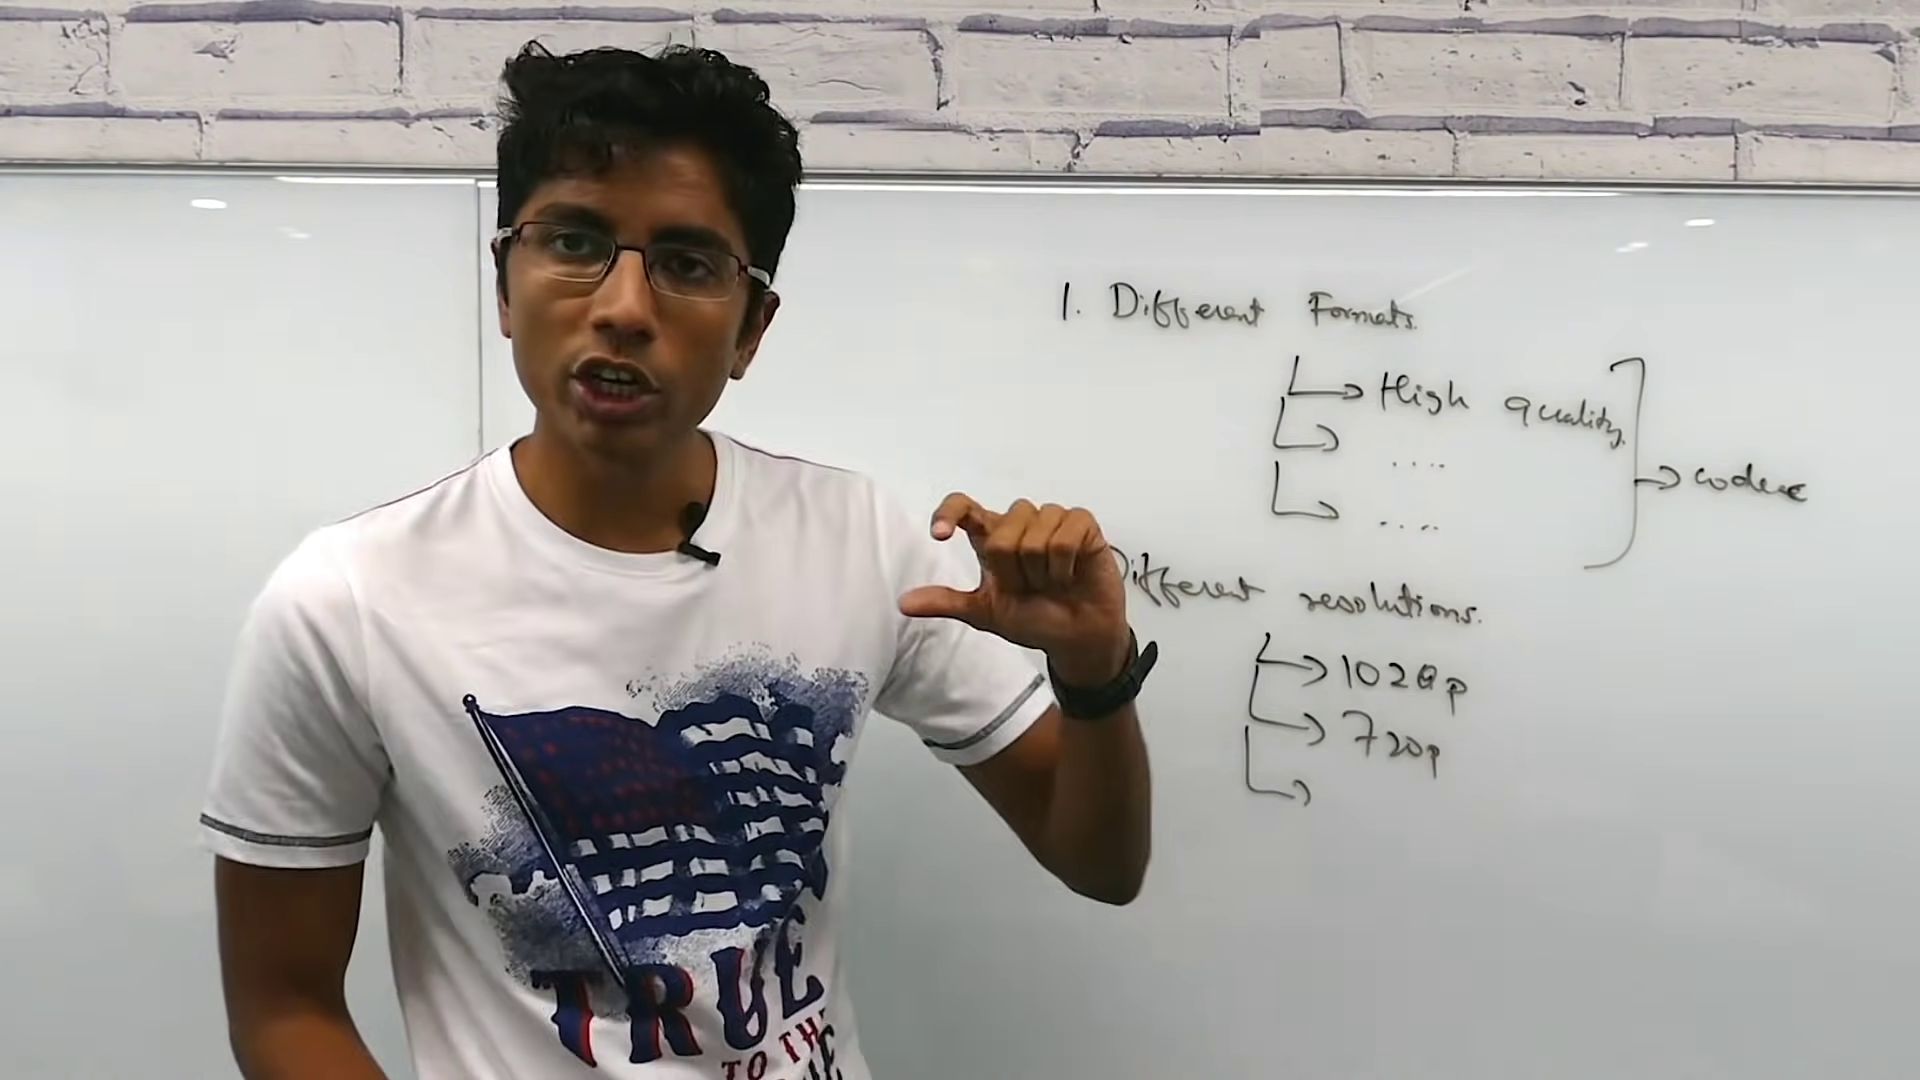 1. Different Formats.
High quality
....
....
codec
Different resolutions.
1020p
720p
TRUE
TO THE